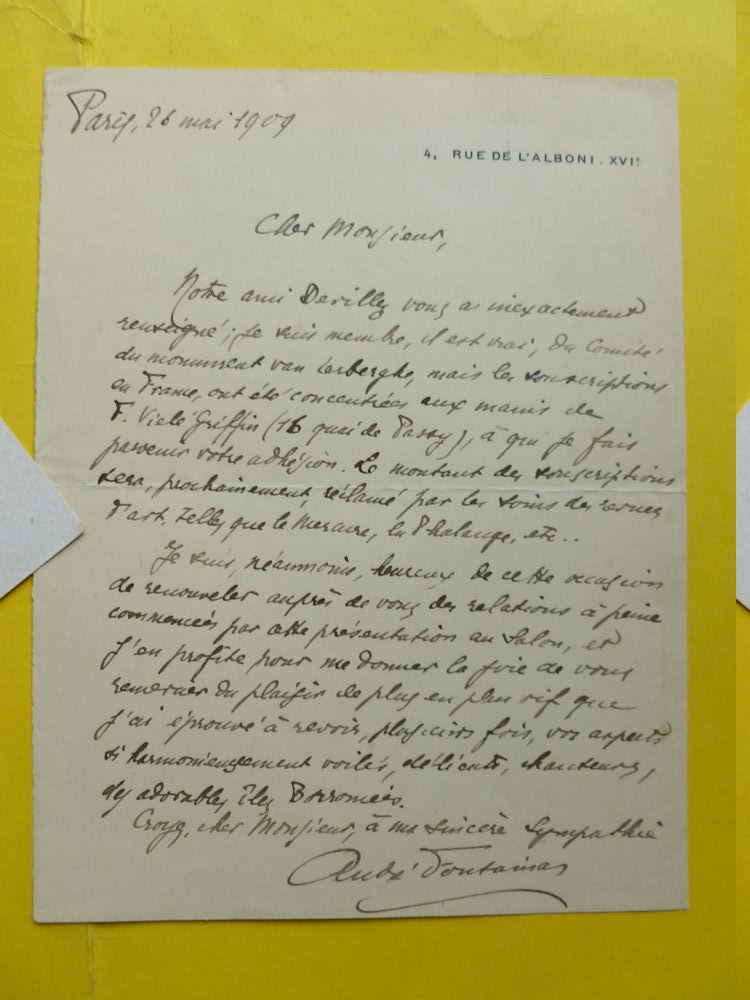 Paris, 26 mai 1909
4, RUE DE L'ALBONI. XVIe
Cher Monsieur,
Notre ami Devilley vous a inexactement
renseigné; je suis membre, il est vrai, du Comité
du monument van Lerberghe, mais les souscriptions
en France, ont été concentrées aux mains de
F. Vielé Griffin (16 quai de Passy), à qui je fais
parvenir votre adhésion. Le montant des souscriptions
sera, prochainement, réclamé par les soins des revues
d'art, telles que le Mercure, la Phalange, etc..
Je suis, néanmoins, heureux de cette occasion
de renouveler auprès de vous des relations à peine
commencées par cette présentation au Salon, et
j'en profite pour me donner la joie de vous
remercier du plaisir de plus en plus vif que
j'ai éprouvé à revoir, plusieurs fois, vos aspects
si harmonieusement voilés, délicats, chanteurs,
des adorables îles Borromées.
Croyez, cher Monsieur, à ma sincère sympathie
André Fontainas